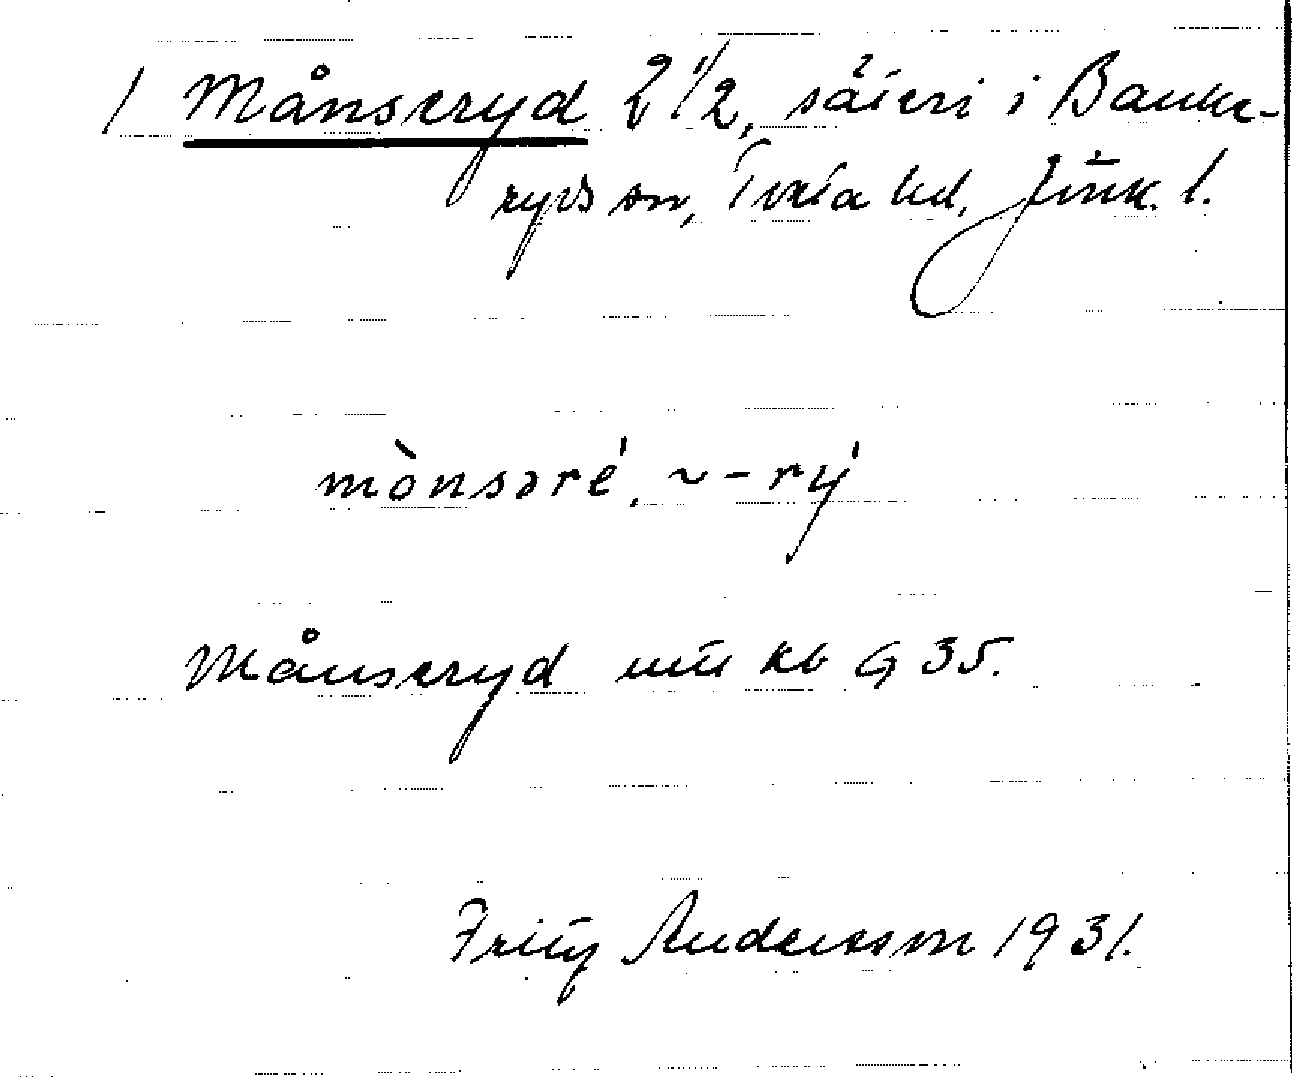 / Månseryd 2 1/2, säteri i Banke-
ryds sn, Tveta hd, Jönk. l.
mònsəré, ~-rý
Månseryd uti kb G 35.
Fritz Andersson 1931.